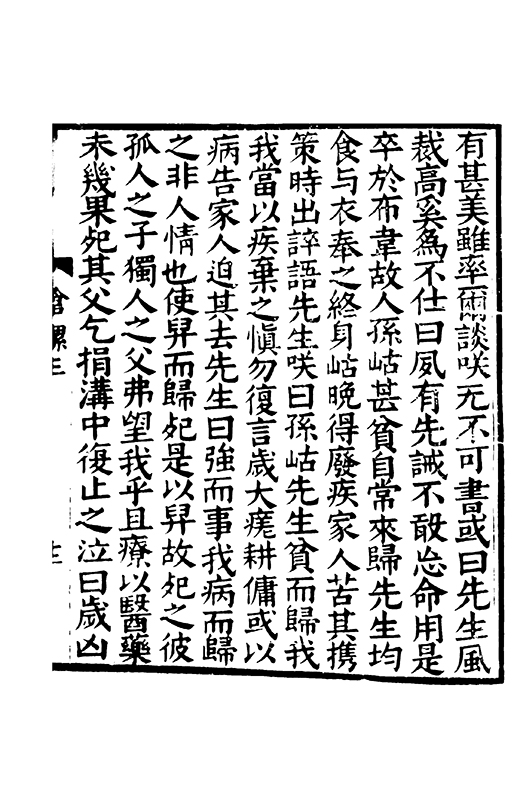 有甚美雖率爾談咲无不可書或曰先生風
裁高奚為不仕曰夙有先誡不敢忘命用是
卒於布韋故人孫岵甚貧自常來歸先生均
食与衣奉之終身岵晚得廢疾家人苦其携
策時出誶語先生咲曰孫岵先生貧而歸我
我當以疾棄之慎勿復言歲大疫耕傭或以
病告家人迫其去先生曰強而事我病而歸
之非人情也使舁而歸死是以舁故死之彼
孤人之子獨人之父弗望我乎且療以醫藥
未幾果死其父乞捐溝中復止之泣曰歲凶
滄螺三